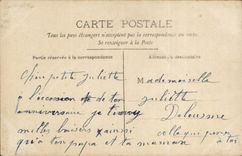 CARTE POSTALE
Tous les pays étrangers n'acceptent pas la correspondance au verso.
Se renseigner à la Poste
Partie réservée à la correspondance
Adresse du destinataire
Chère petite Juliette
à l'occasion de ton
anniversaire je t'envoie
milles baisers ainsi
qu'à ton papa et ta maman
Mademoiselle
Juliette
à toi